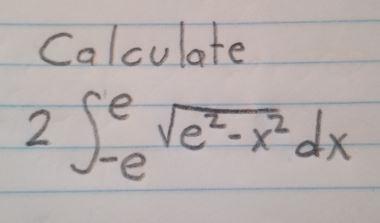 Calculate
2 ∫_{-e}^{e} √(e²-x²) dx